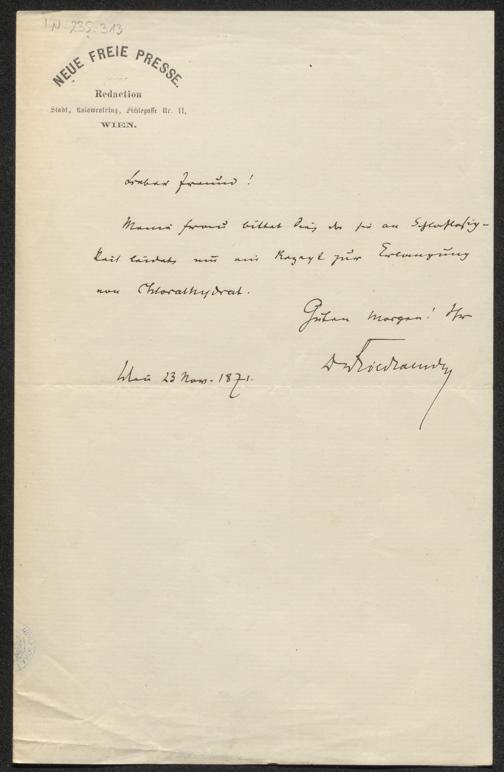 IN-235.313
NEUE FREIE PRESSE.
Redaction
Stadt, Kolowratring, Fichtegasse Nr. 11,
WIEN.
Lieber Freund!
Meine Frau bittet Sie, da sie an Schlaflosig-
keit leidet, um ein Rezept zur Erlangung
von Chloralhydrat.
Guten Morgen! Ihr
Dr Friedlaender
Wien 23 Nov. 1871.